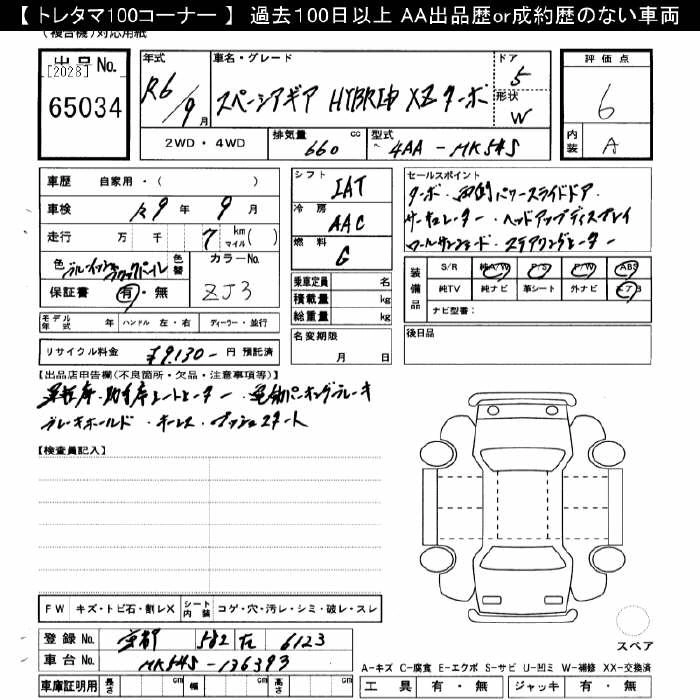 【 トレタマ100コーナー 】 過去100日以上 AA出品歴or成約歴のない車両
(複合機)対応用紙
出品No.
[2028]
65034
年式
R6/9月
車名・グレード
スペーシアギア HYBRID XZターボ
ドア
5
形状
W
評価点
6
内装
A
2WD ・ 4WD
排気量 660 cc
型式 4AA-MK54S
車歴 自家用・( )
車検 R9 年 9 月
走行 万 千 7 km マイル ( )
色
色替
カラーNo.
ZJ3
保証書 有・無
モデル年式 年 ハンドル 左・右 ディーラー・並行
リサイクル料金 ¥9,130- 円 預託済
シフト IAT
冷房 AAC
燃料 G
乗車定員 名
積載量 kg
総重量 kg
名変期限
月 日
セールスポイント
ターボ・両側パワースライドドア・
サーキュレーター・ヘッドアップディスプレイ
ロールサンシェード・ステアリングヒーター
装備品
S/R 純A/W P/S P/W ABS
純TV 純ナビ 革シート 外ナビ エアB
ナビ型番:
後日品
【出品店申告欄(不良箇所・欠品・注意事項等)】
運転席・助手席シートヒーター・電動パーキングブレーキ
ブレーキホールド・キーレス・プッシュスタート
【検査員記入】
FW キズ・トビ石・割レX シート内装 コゲ・穴・汚レ・シミ・破レ・スレ
登録No. 京都 582 た 6123
車台No. MK54S-136393
車庫証明用 長さ cm 幅 cm 高さ cm
スペア
A-キズ C-腐食 E-エクボ S-サビ U-凹ミ W-補修 XX-交換済
工具 有・無 ジャッキ 有・無